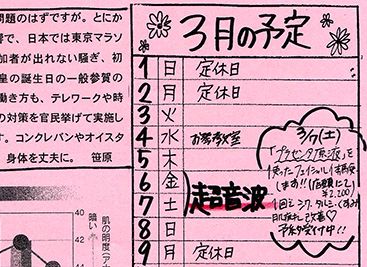 問題のはずですが。とにか
響で、日本では東京マラソ
加者が出れない騒ぎ、初
皇の誕生日の一般参賀の
働き方も、テレワークや時
の対策を官民挙げて実施し
す。コンクレバンやオイスタ
身体を丈夫に。 笹原
3月の予定
1 日 定休日
2 月 定休日
3 火
4 水 お香教室
5 木
6 金
7 土
超音波
8 日
9 月 定休日
3/7(土)
「プラセンタ原液」を
使ったフェイシャル
します!!(店頭にて
¥2,200)
1回で シワ、タルミ、くすみ
肌荒れ 改善♡
予約受付中!!
肌の明度(ア
明るい
40
38